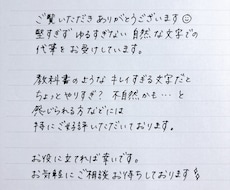 ご覧いただき ありがとうございます☺
堅すぎず ゆるすぎない 自然な文字での
代筆を お受けしています。
教科書のような キレイすぎる文字だと
ちょっとやりすぎ? 不自然かも…と
感じられる方などには
特にご好評いただいております。
お役に立てれば幸いです。
お気軽に ご相談お待ちしております